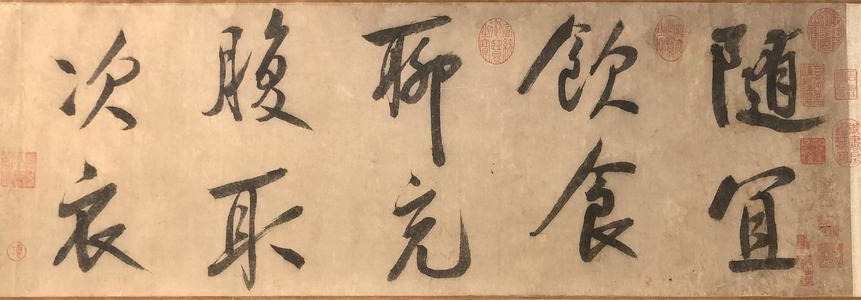 随宜
飲食
聊充
腹取
次衣